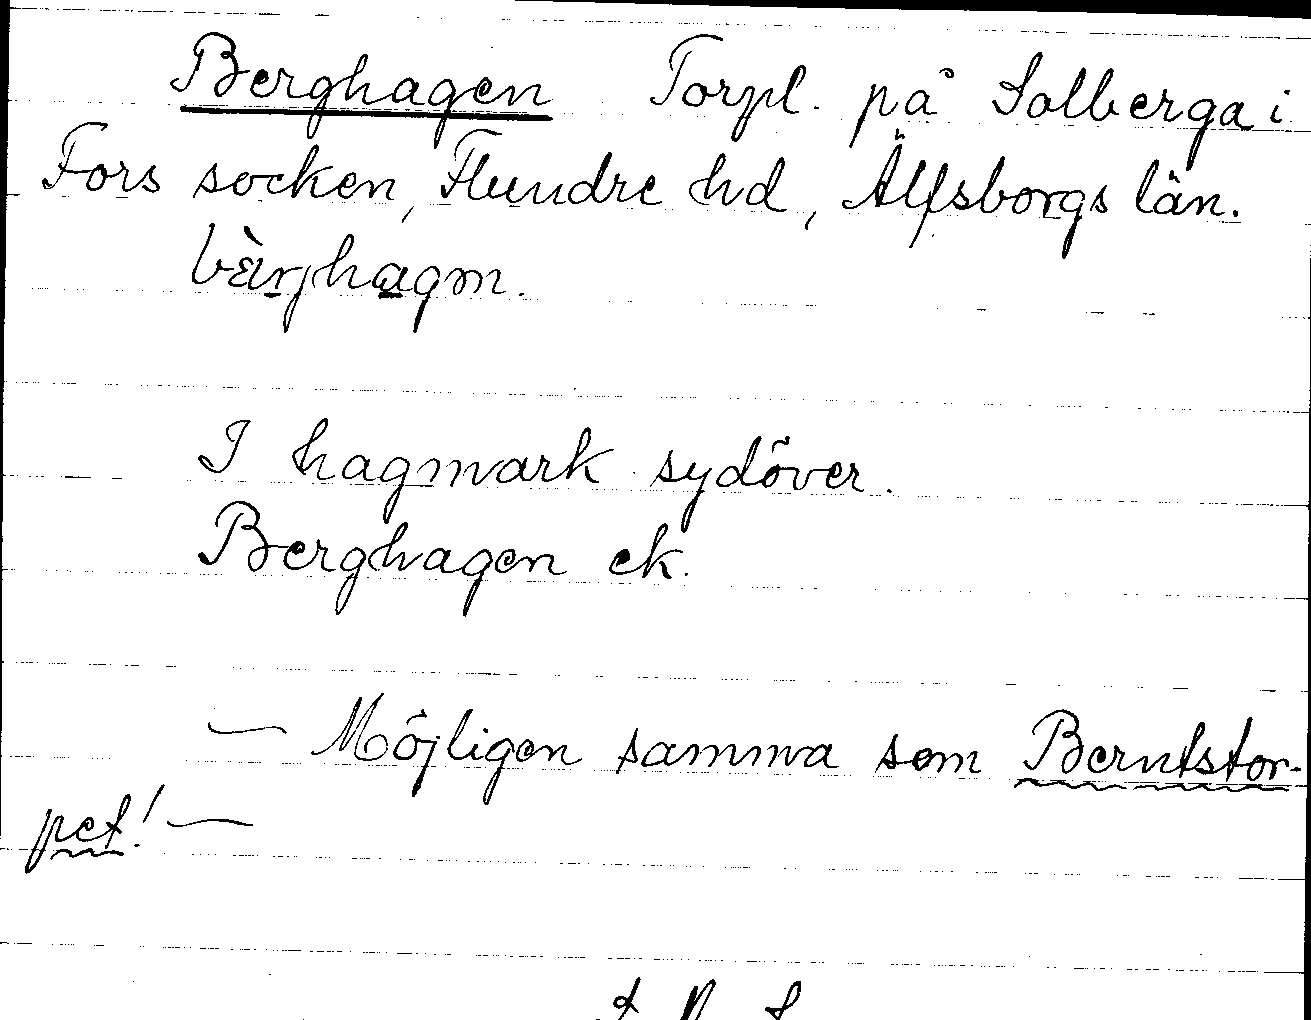 Berghagen Torpl. på Solberga i
Fors socken, Flundre hd, Älfsborgs län.
I hagmark sydöver.
Berghagen ek.
— Möjligen samma som Berntstor-
pet! —